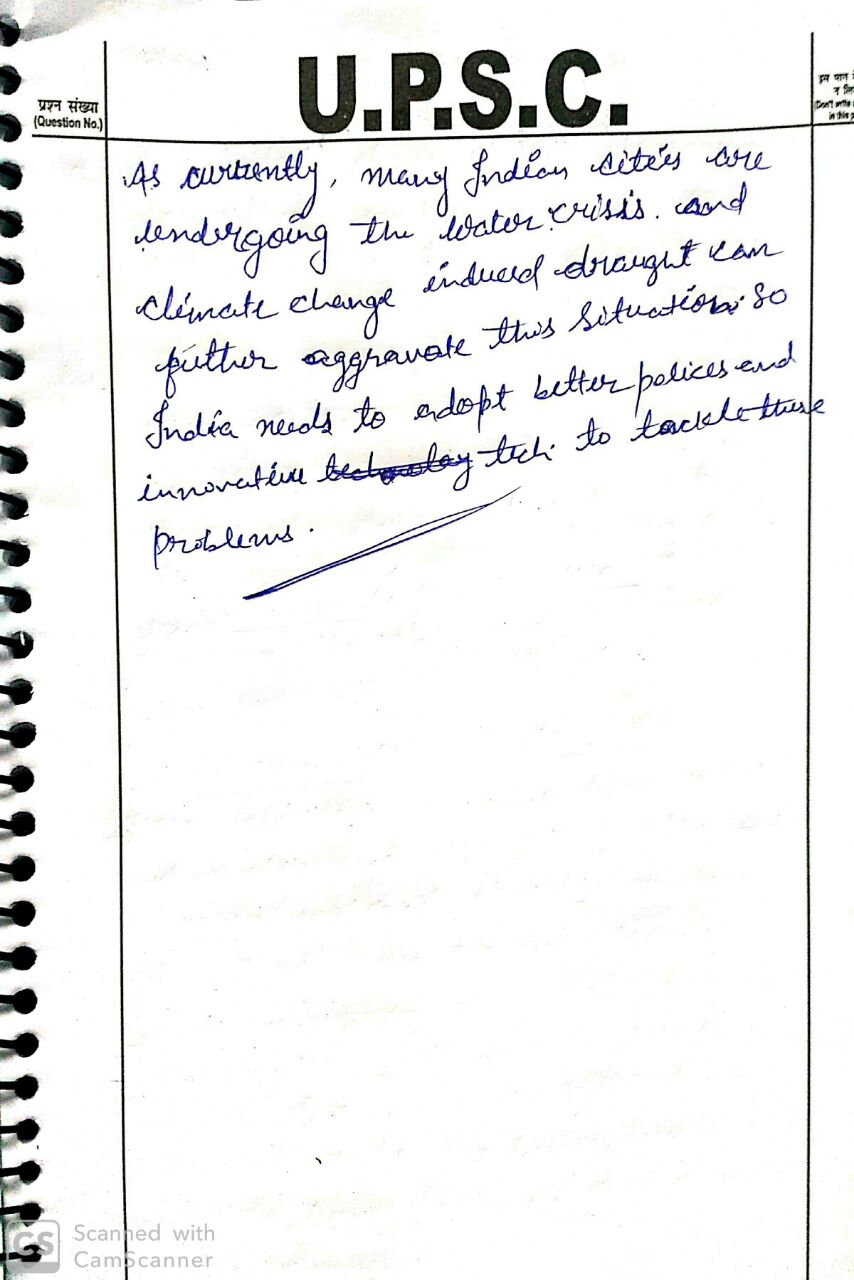 U.P.S.C.
प्रश्न संख्या
(Question No.)
इस भाग में
(Don't write
in this p
As currently, many Indian cities are
undergoing the water crisis. and
climate change induced draught can
futher aggravate this situation. So
India needs to adopt better polices and
innovative technology tech. to tackle these
problems.
CS
Scanned with
CamScanner